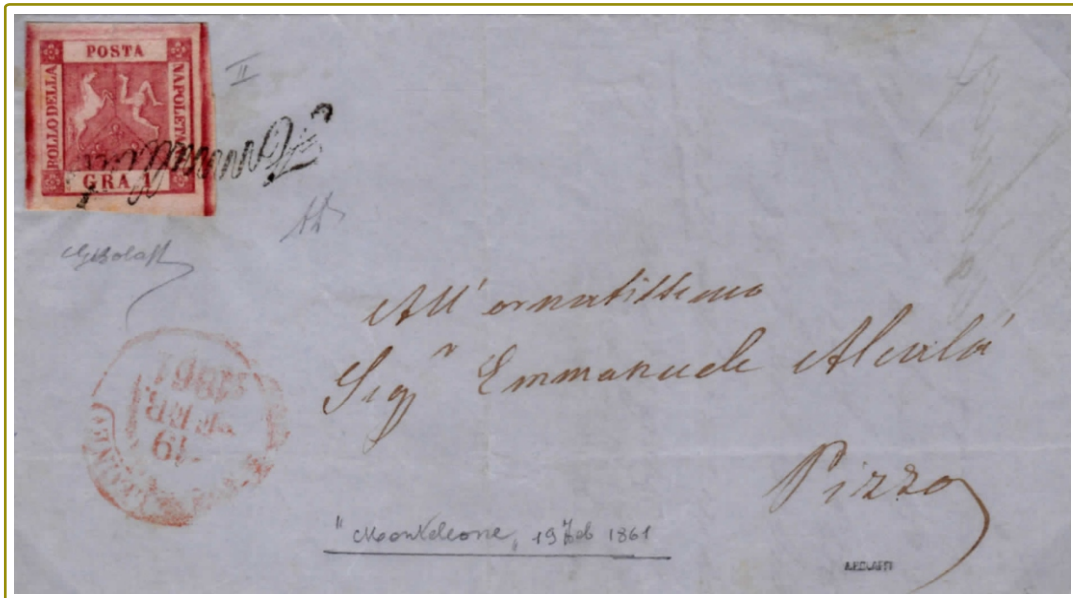 POSTA
BOLLO DELLA
NAPOLETANA
GRA 1
II
Annullato
All' ornatissimo
Sigr Emmanuele
Pizzo
19
FEB
1861
" Monteleone, 19 Feb 1861